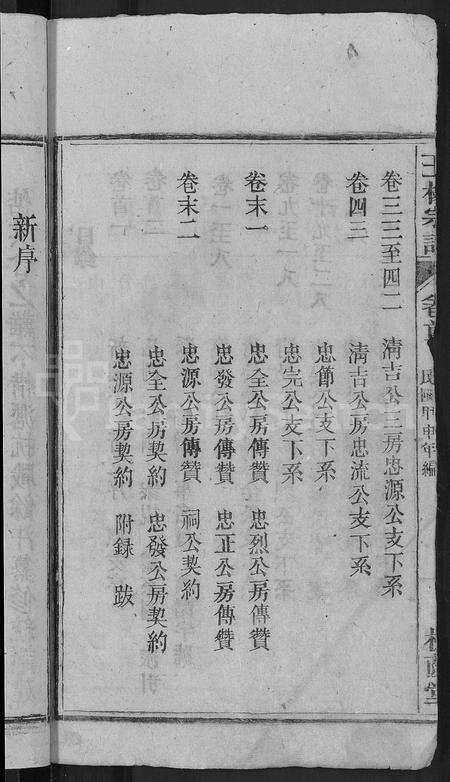 卷三三至四二　清吉公三房忠源公支下系
卷四三　清吉公房忠流公支下系
忠節公支下系
忠完公支下系
卷末一　忠全公房傳贊　忠烈公房傳贊
忠發公房傳贊　忠正公房傳贊
卷末二　忠源公房傳贊　祠公契約
忠全公房契約　忠發公房契約
忠源公房契約　附錄　跋
民國甲申年編
新序